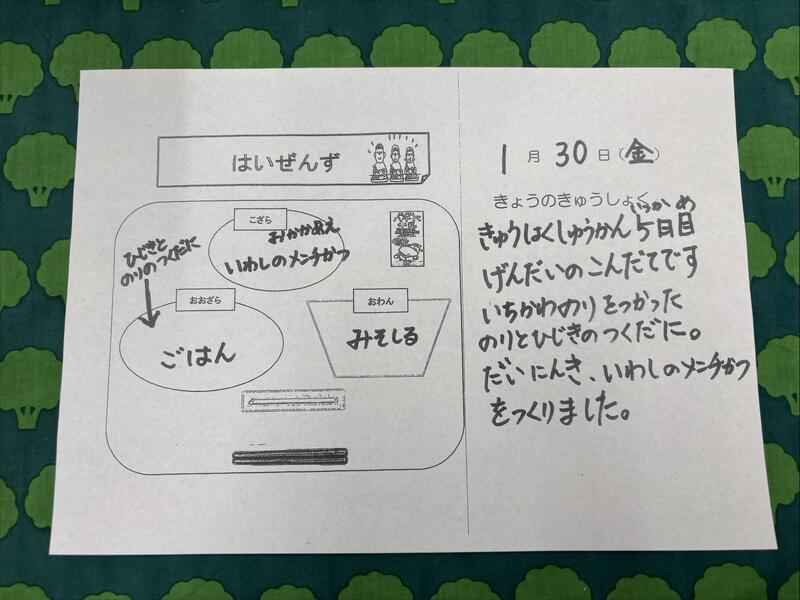 はいぜんず
こざら
おかかあえ
いわしのメンチかつ
ひじきと
のりのつくだに
おおざら
ごはん
おわん
みそしる
1月30日(金)
きょうのきゅうしょく
いつかめ
きゅうはくしゅうかん5日目
げんだいのこんだてです
いちかわのりをつかった
のりとひじきのつくだに。
だいにんき、いわしのメンチかつ
をつくりました。